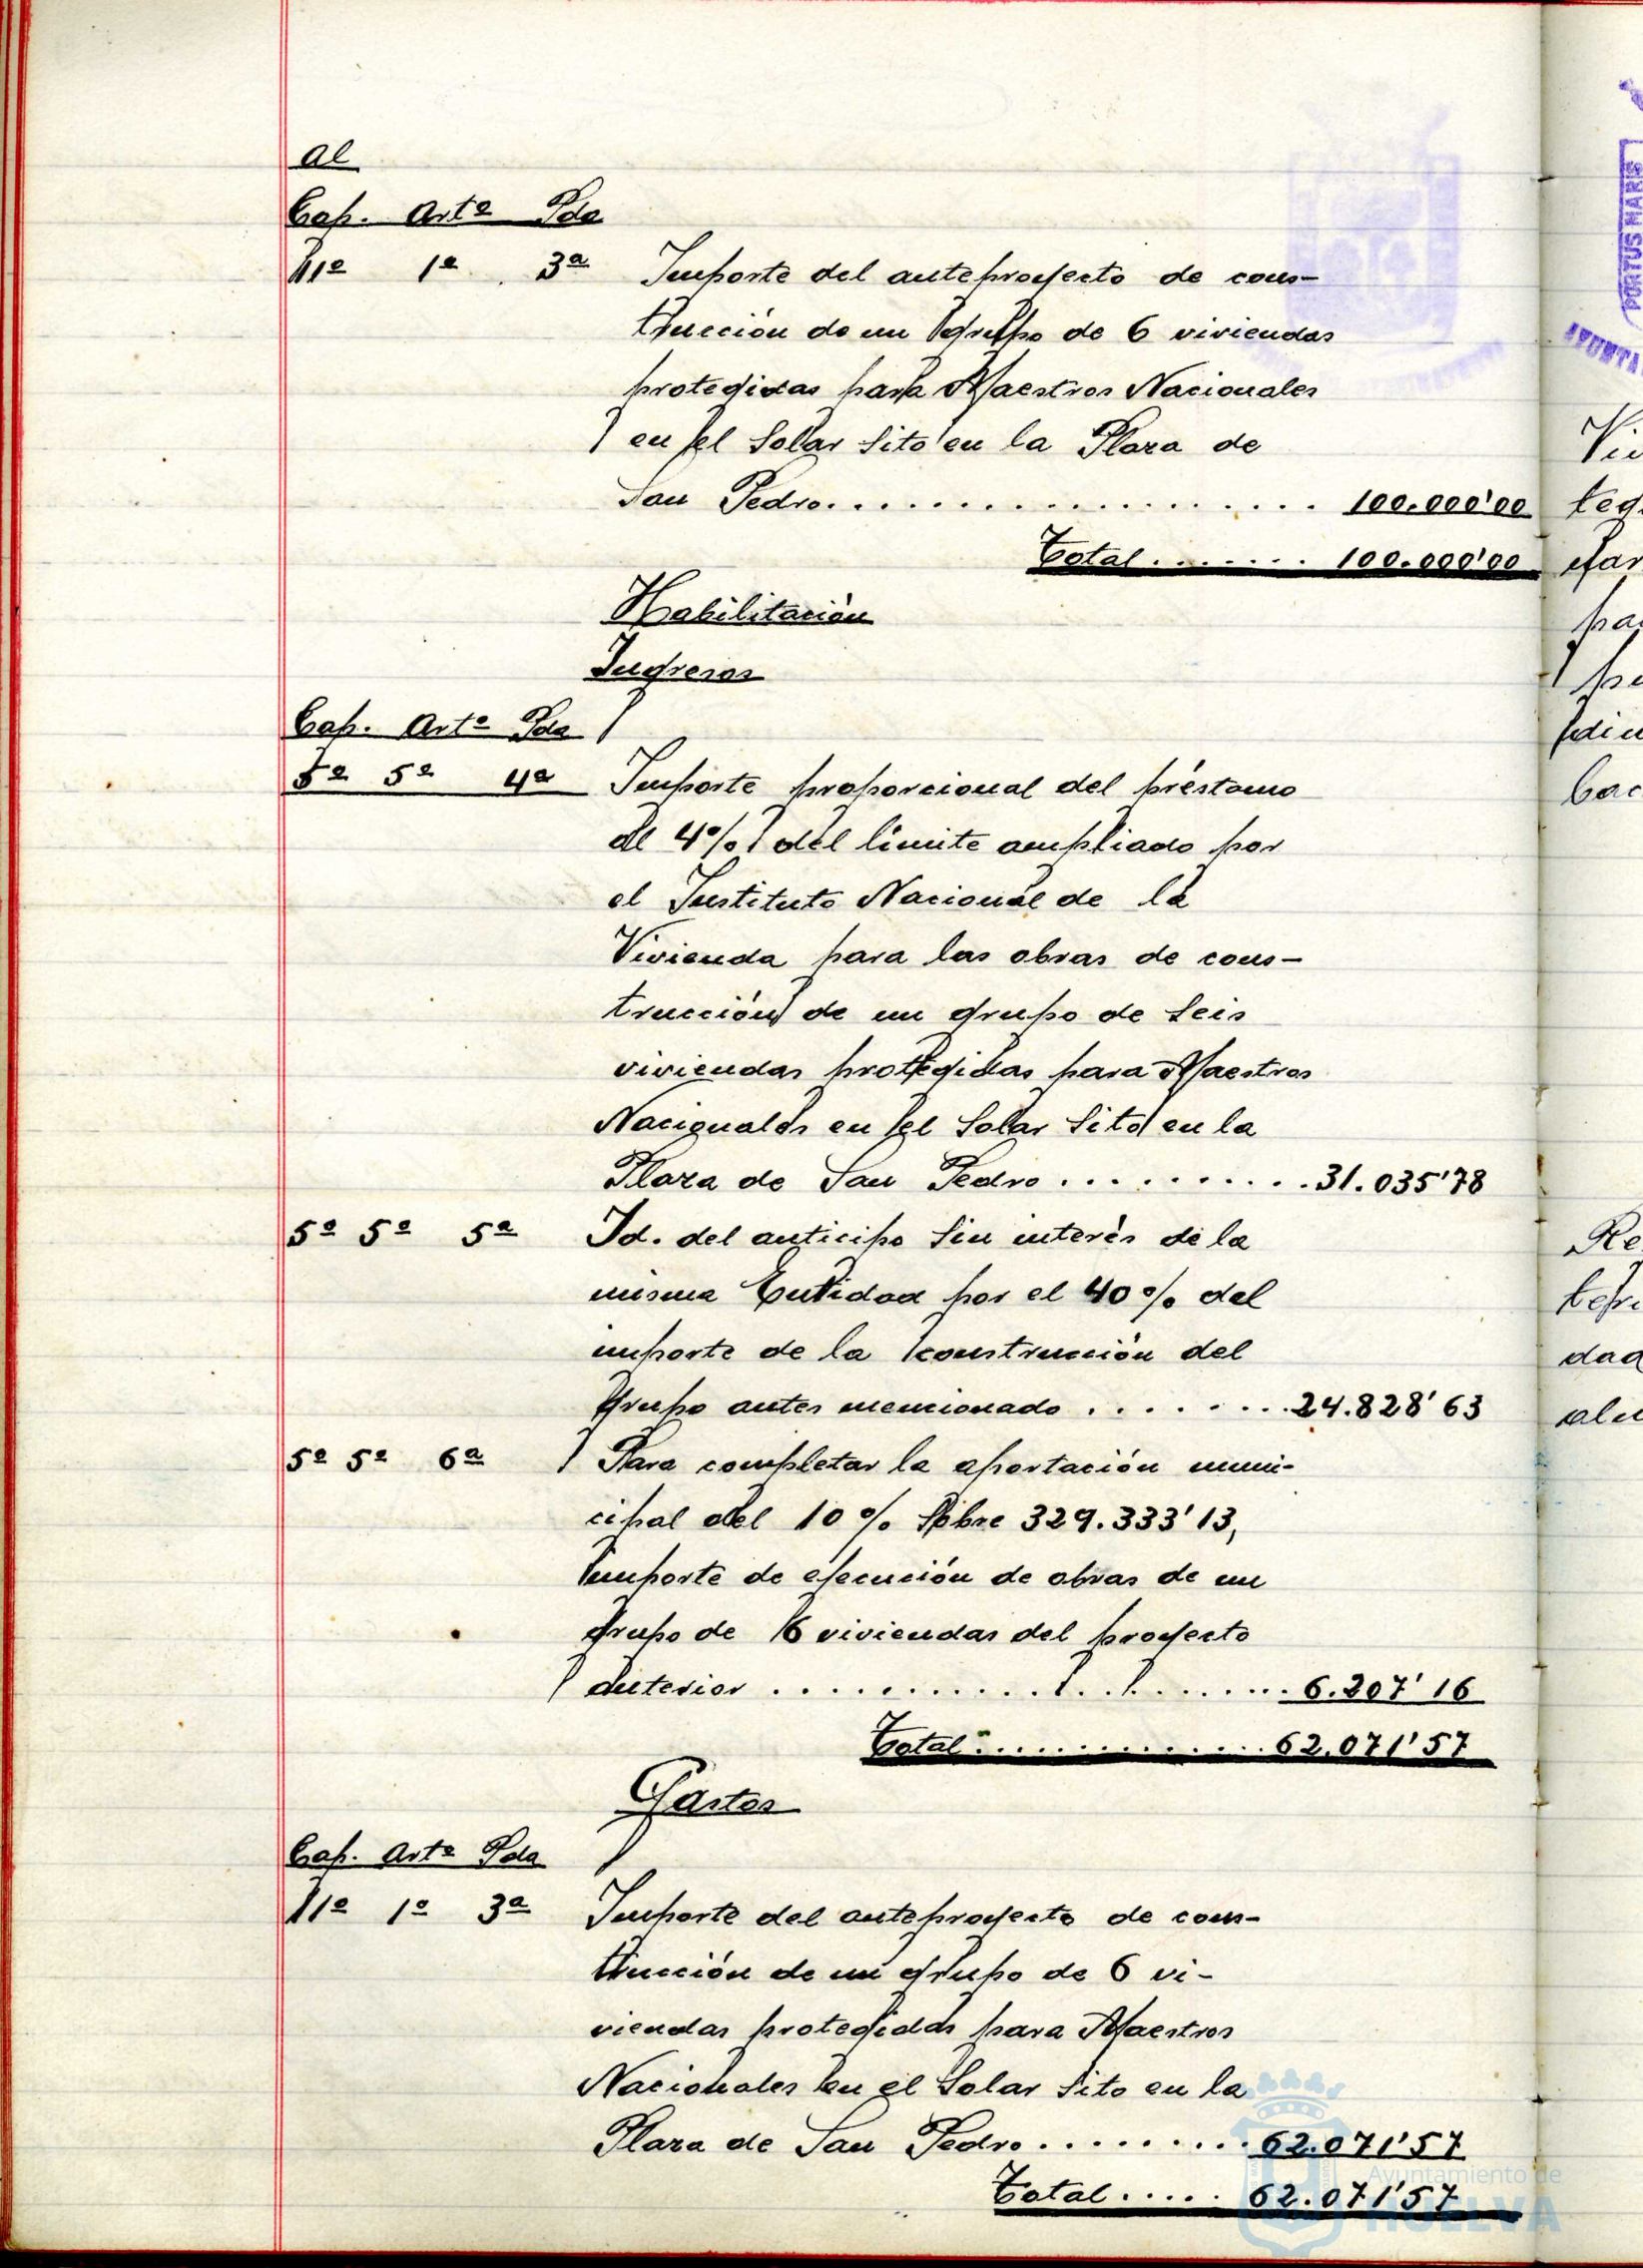 Al
Cap. Artº Pda
11º 1º 3ª Importe del anteproyecto de cons-
trucción de un grupo de 6 viviendas
protegidas para Maestros Nacionales
en el Solar Sito en la Plaza de
San Pedro................... 100.000'00
Total....... 100.000'00
Habilitación
Ingresos
Cap. Artº Pda
5º 5º 4ª Importe proporcional del préstamo
al 4% del límite ampliado por
el Instituto Nacional de la
Vivienda para las obras de cons-
trucción de un grupo de Seis
viviendas protegidas para Maestros
Nacionales en el Solar Sito en la
Plaza de San Pedro..........31.035'78
5º 5º 5ª Id. del anticipo Sin interès de la
misma Entidad por el 40% del
importe de la construcción del
Grupo antes mencionado........24.828'63
5º 5º 6ª Para completar la aportación muni-
cipal del 10% Sobre 329.333'13,
importe de ejecución de obras de un
grupo de 6 viviendas del proyecto
anterior....................6.207'16
Total..............62.071'57
Gastos
Cap. Artº Pda
11º 1º 3ª Importe del anteproyecto de cons-
trucción de un grupo de 6 vi-
viendas protegidas para Maestros
Nacionales en el Solar Sito en la
Plaza de San Pedro.........62.071'57
Total.....62.071'57
Ayuntamiento de
HUELVA
PORTUS MARIS